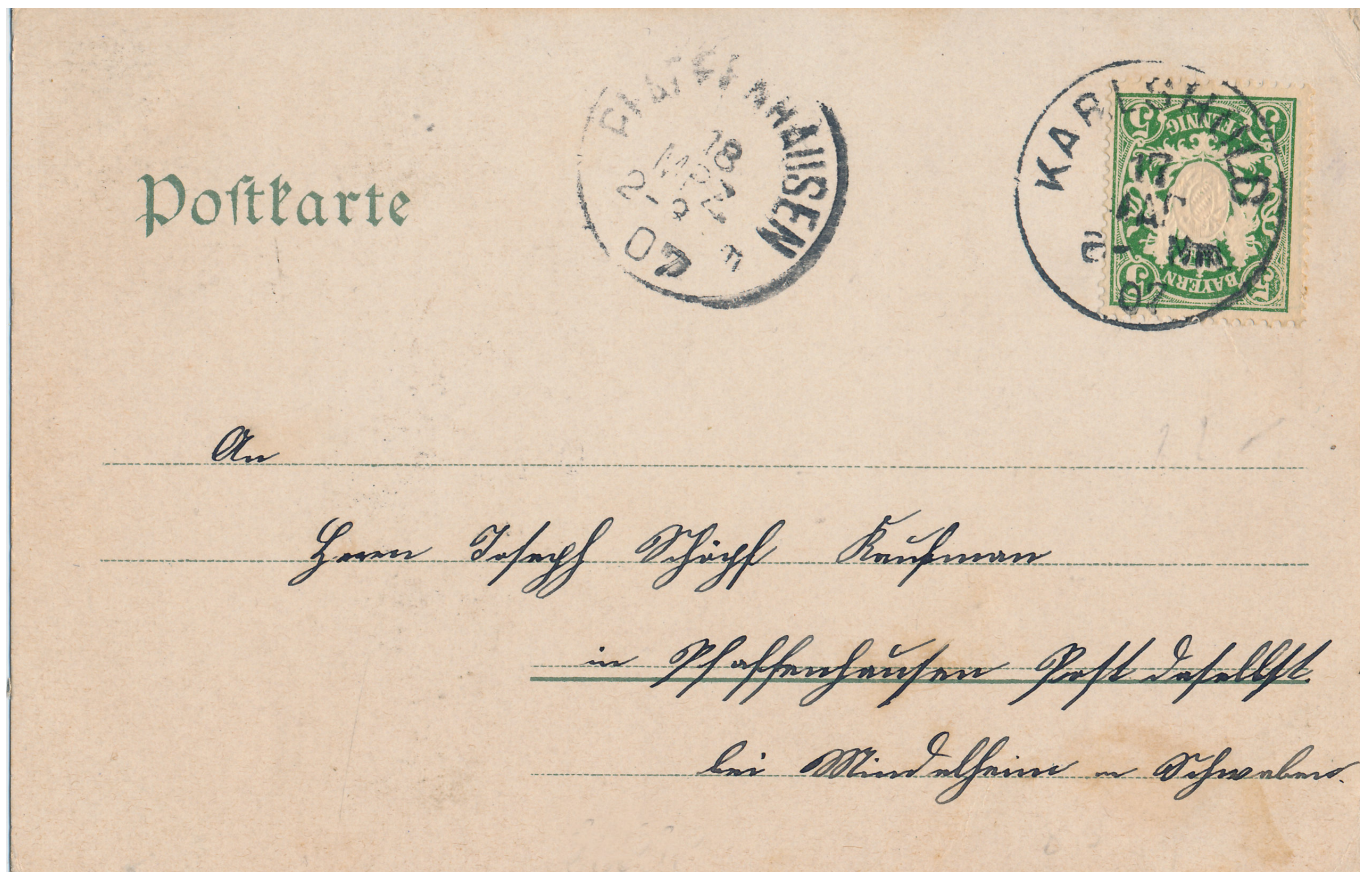 Postkarte
PFAFFENHAUSEN
18
2
07
KARLSHULD
17.
Nm
07
5 PFENNIG 5
5 BAYERN 5
An
Herrn Joseph Schöpf Kaufman
in Pfaffenhausen Post daselbst
bei Mindelheim in Schwaben.